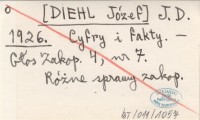 [DIEHL Józef] J.D.
1926. Cyfry i fakty. —
Głos Zakop. 4, nr 7.
Różne sprawy zakop.